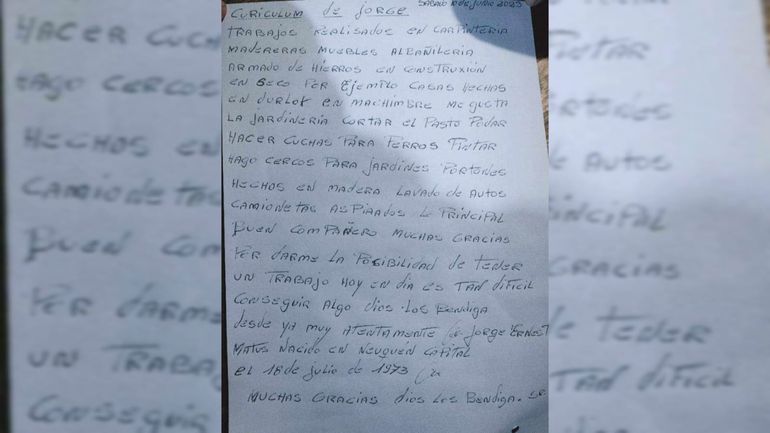 CURICULUM de JORGE SABADO 10 DE JUNIO 2023
TRABAJOS REALISADOS EN CARPINTERIA
MADERERAS MUEBLES ALBAÑILERIA
ARMADO DE HIERROS EN CONSTRUXIÓN
EN SECO POR EJEMPLO CASAS HECHAS
EN DURLOK EN MACHIMBRE ME GUSTA
LA JARDINERIA CORTAR EL PASTO PODAR
HACER CUCHAS PARA PERROS PINTAR
HAGO CERCOS PARA JARDINES PORTONES
HECHOS EN MADERA LAVADO DE AUTOS
CAMIONETAS ASPIRADOS LO PRINCIPAL
BUEN COMPAÑERO MUCHAS GRACIAS
POR DARME LA POCIBILIDAD DE TENER
UN TRABAJO HOY EN DIA ES TAN DIFICIL
CONSEGUIR ALGO DIOS LOS BENDIGA
DESDE YA MUY ATENTAMENTE de JORGE ERNEST
MATUS NACIDO EN NEUQUÉN CAPITAL
EL 18 de JULIO de 1973
MUCHAS GRACIAS DIOS LOS BENDIGA.